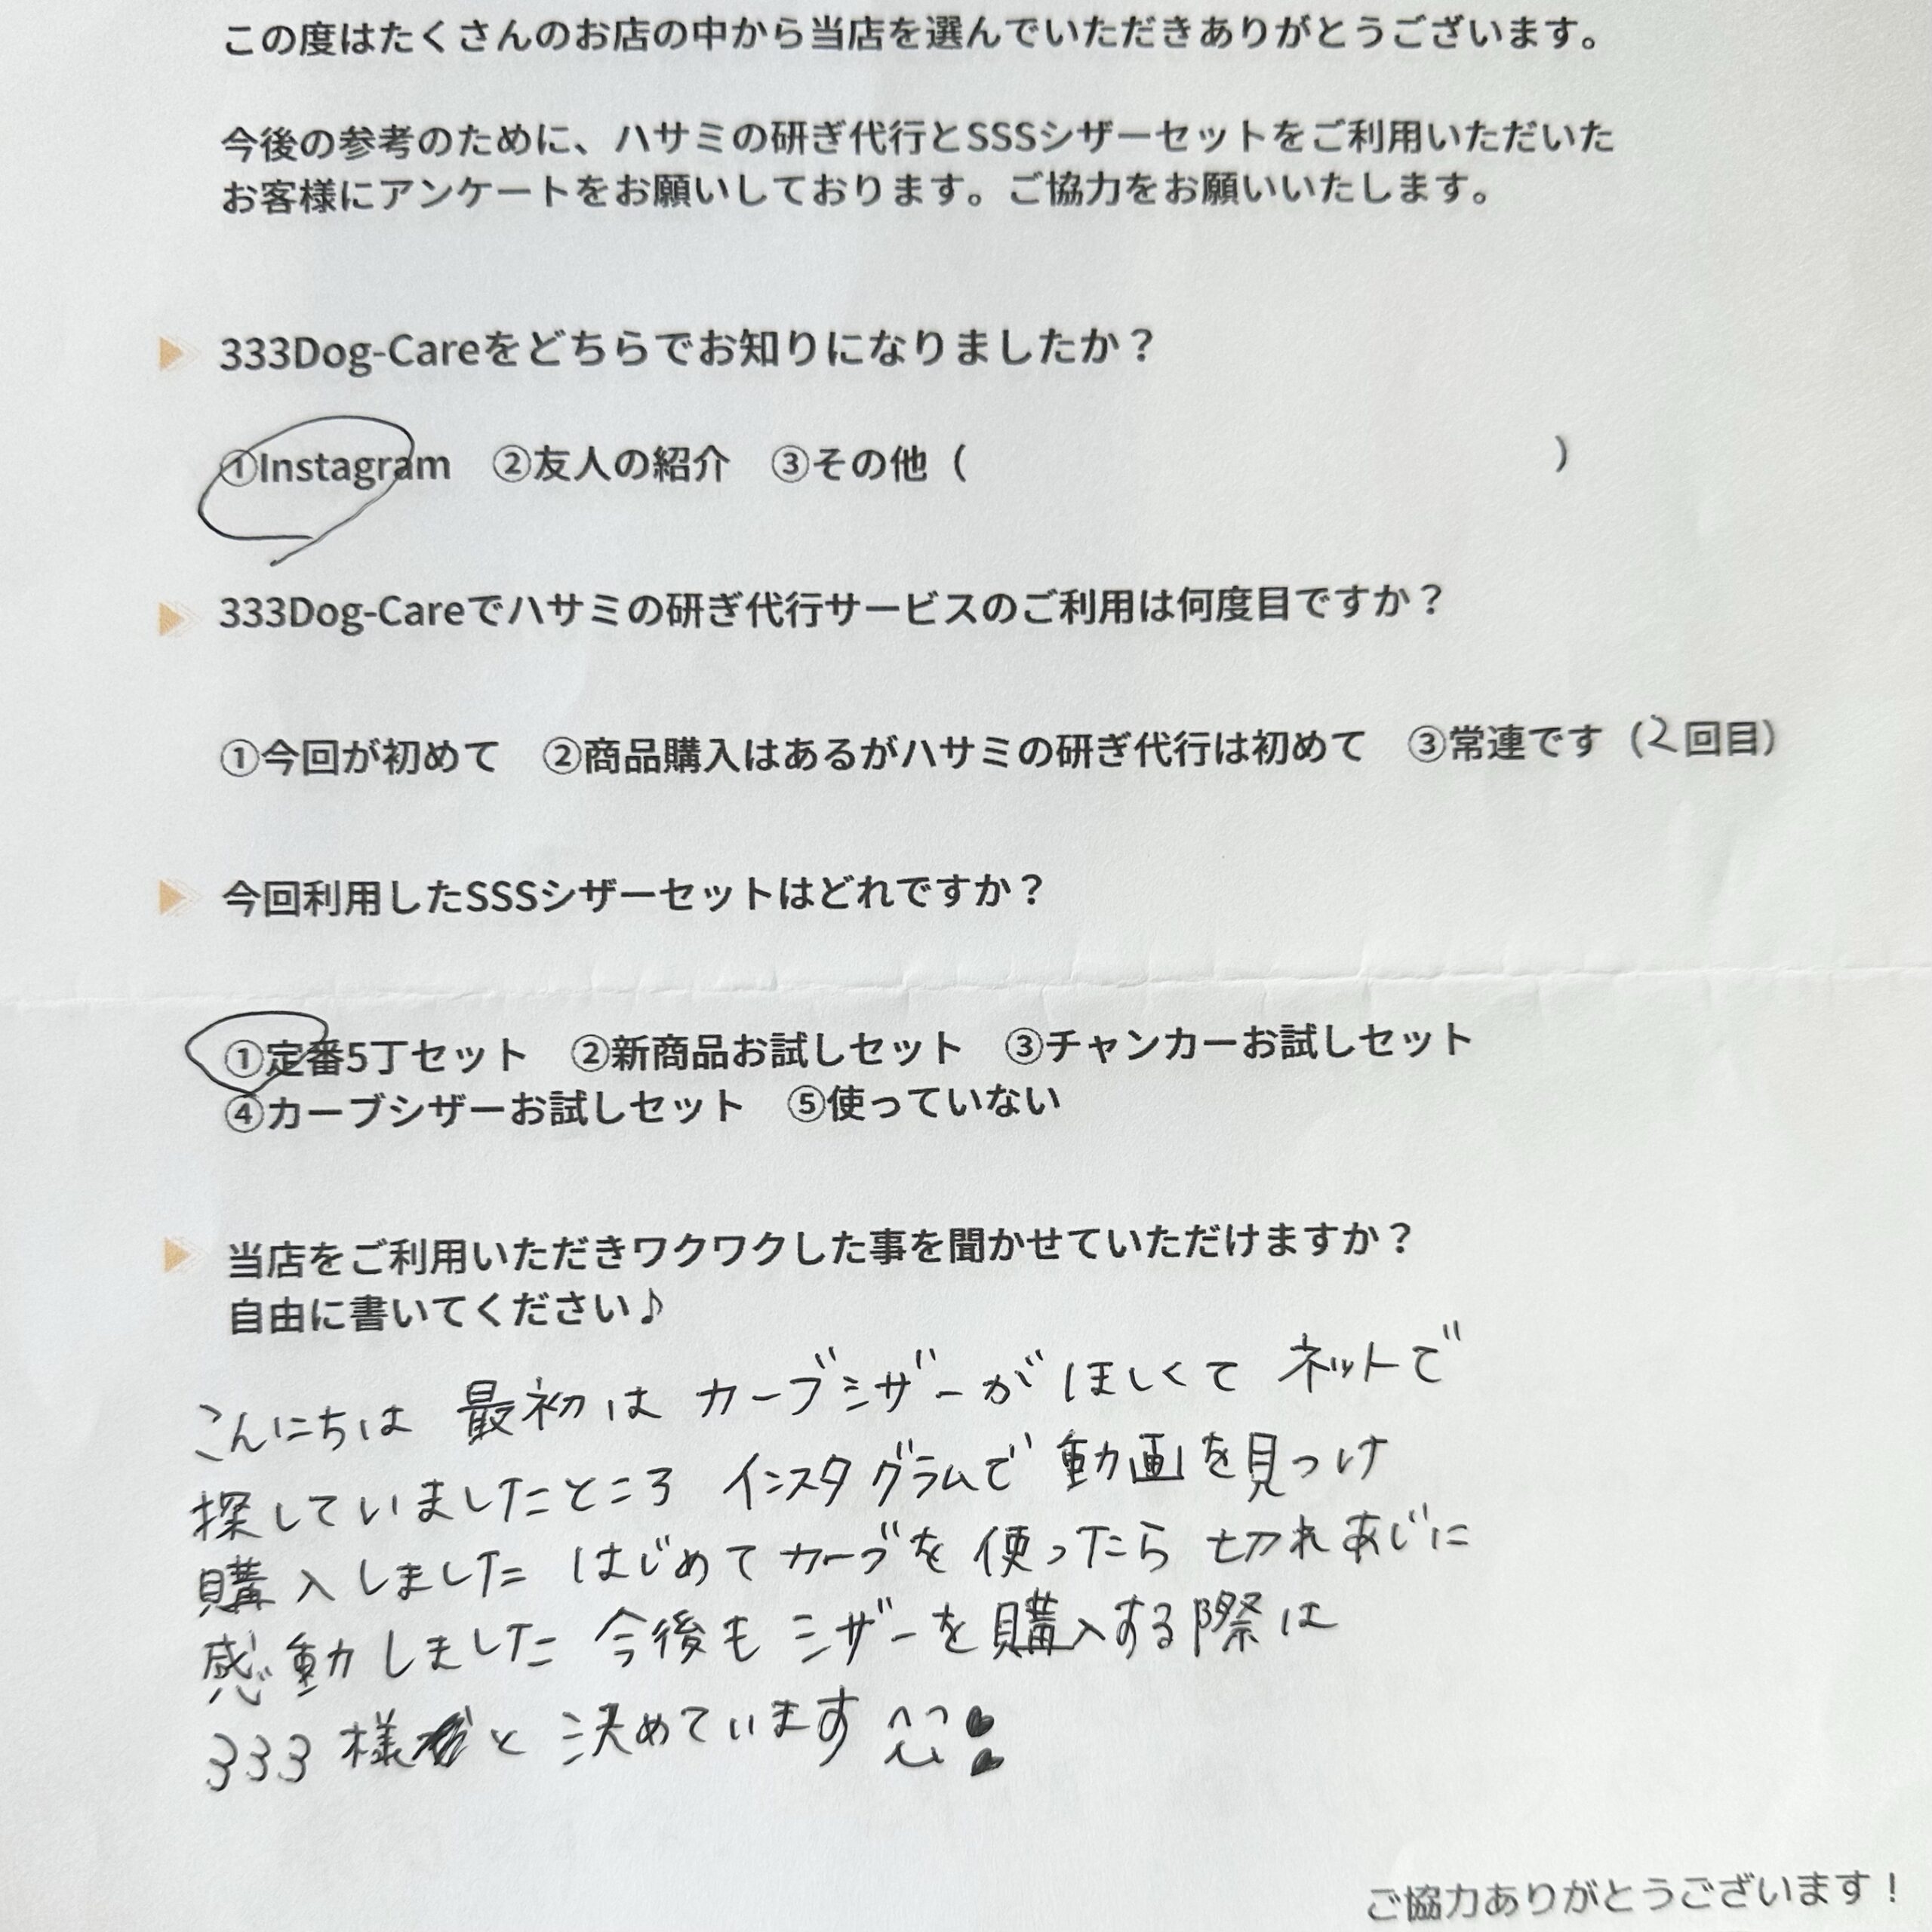 この度はたくさんのお店の中から当店を選んでいただきありがとうございます。
今後の参考のために、ハサミの研ぎ代行とSSSシザーセットをご利用いただいた
お客様にアンケートをお願いしております。ご協力をお願いいたします。
333Dog-Careをどちらでお知りになりましたか？
①Instagram　②友人の紹介　③その他（　　　　　　　　　　）
333Dog-Careでハサミの研ぎ代行サービスのご利用は何度目ですか？
①今回が初めて　②商品購入はあるがハサミの研ぎ代行は初めて　③常連です（2回目）
今回利用したSSSシザーセットはどれですか？
①定番5丁セット　②新商品お試しセット　③チャンカーお試しセット
④カーブシザーお試しセット　⑤使っていない
当店をご利用いただきワクワクした事を聞かせていただけますか？
自由に書いてください♪
こんにちは 最初は カーブシザーが ほしくて ネットで
探していましたところ インスタグラムで 動画を見つけ
購入しました はじめてカーブを 使ったら 切れあじに
感動しました 今後も シザーを購入する際は
333様と 決めています ^^
ご協力ありがとうございます！